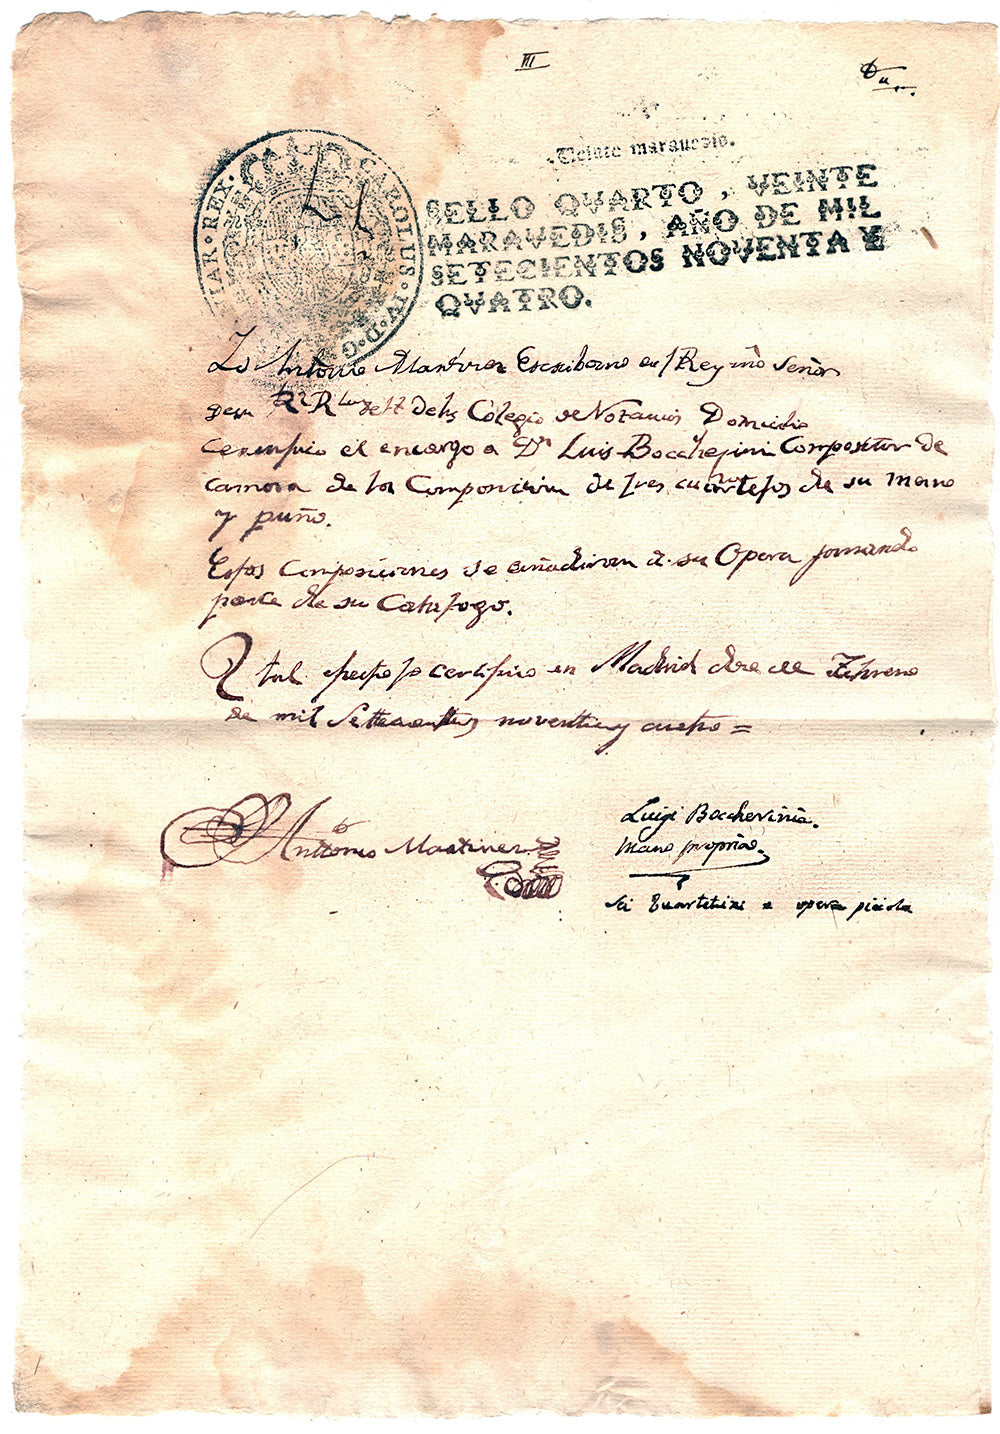 III
Veinte maravedis.
CAROLUS·IV·D·G· HISPANIAR·REX·
SELLO QVARTO, VEINTE
MARAVEDIS, AÑO DE MIL
SETECIENTOS NOVENTA Y
QVATRO.
Yo Antonio Martinez Escribano del Rey nro Señor
Colegio de Notarios Domicilio
certifico el encargo a Dn Luis Boccherini Compositor de
camara de la Composicion de tres cuartetos de su mano
y puño.
Estas composiciones se añadiran a su Opera formando
parte de su Catalogo.
tal efecto lo certifico en Madrid doce de Febrero
de mil Setecientos noventa y cuatro =
Luigi Boccherinia.
Antonio Martinez
Mano proprio.
Sei Quartetini = opera picola